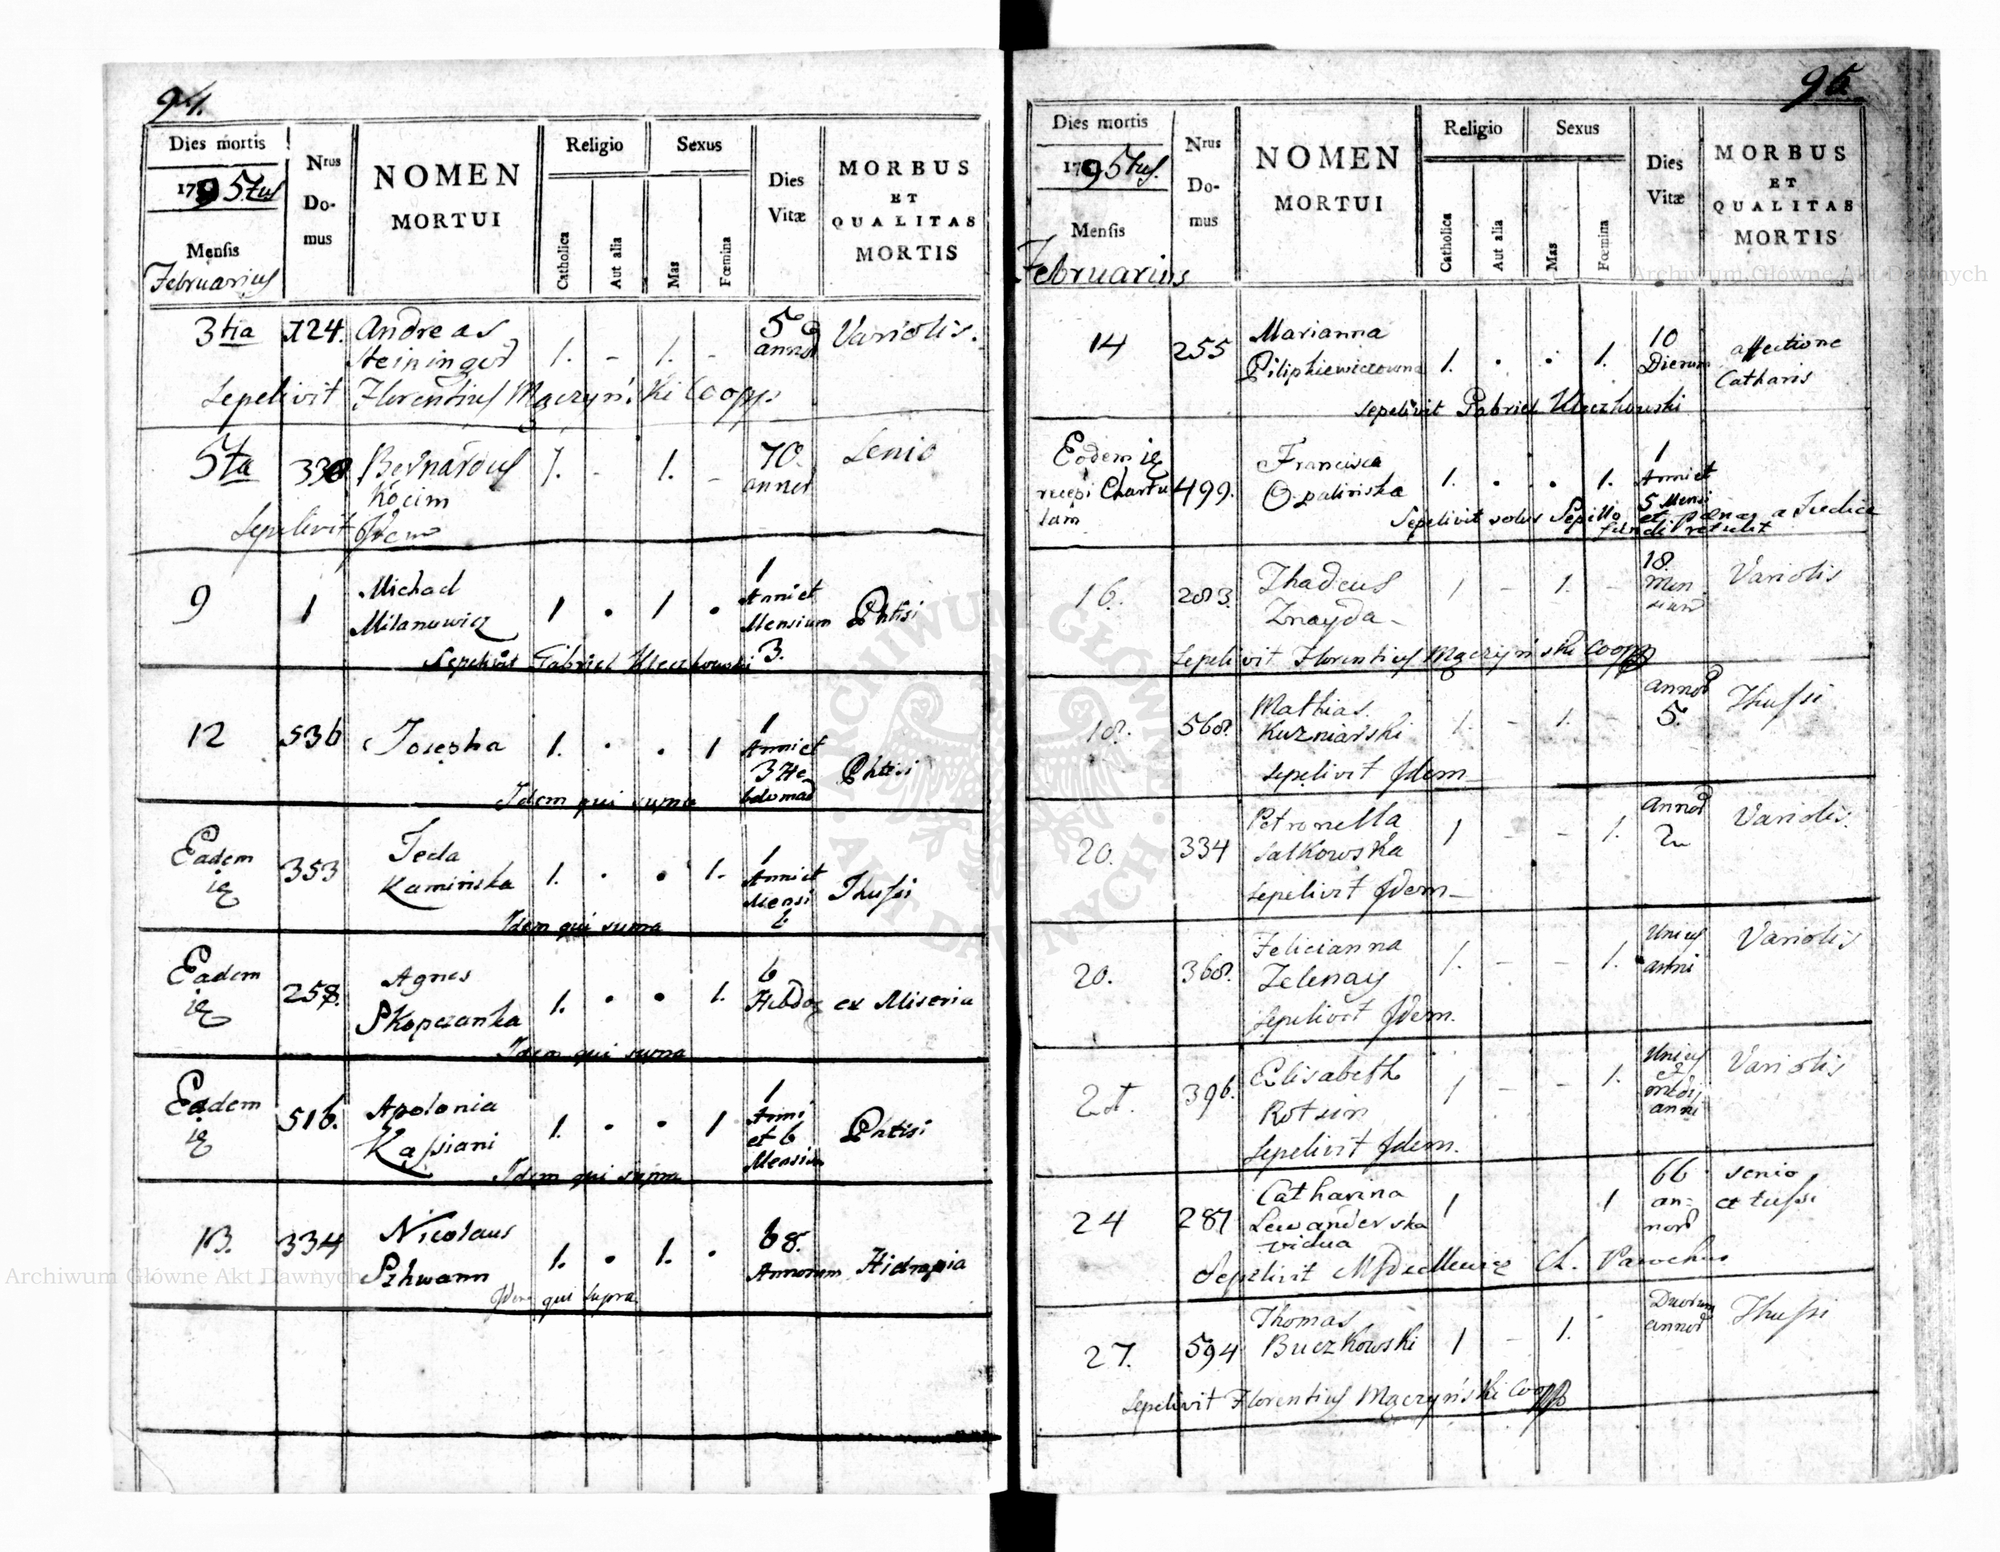 94.
Dies mortis
1795tus
Mensis
Februarius
Nrus
Do-
mus
NOMEN
MORTUI
Religio
Catholica
Aut alia
Sexus
Mas
Fœmina
Dies
Vitæ
MORBUS
ET
QUALITAS
MORTIS
3tia 124. Andreas 1. - 1. - 5 Variolis.
Steininger annor
Sepelivit Florentius Mączyński Coopr
5ta 330 Bernardus 1. - 1. - 70. Senio
Kocim annor
Sepelivit Idem
9 1 Michael 1 . 1 . 1 Phtisi
Milanowicz Anni et
Mensium
3.
Sepelivit Gabriel Kleczkowski
12 536 Josepha 1. . . 1 1 Phtisi
Anni et
3 He-
bdomad
Idem qui supra
Eadem 353 Tecla 1. . . 1. 1 Thussi
Kamińska Anni et
Mensi
6
Idem qui supra
Eadem 258. Agnes 1. . . 1. 6 ex Miseria
Skopczanka Hebdo
Idem qui supra
Eadem 516. Apolonia 1. . . 1 1 Phtisi
Kassiani Anni
et 6
Mensium
Idem qui supra
13. 334 Nicolaus 1. . 1. . 68. Hidropia
Szhwann Annorum
Idem qui supra
95.
Dies mortis
1795tus.
Mensis
Februarius
Nrus
Do-
mus
NOMEN
MORTUI
Religio
Catholica
Aut alia
Sexus
Mas
Fœmina
Dies
Vitæ
MORBUS
ET
QUALITAS
MORTIS
14 255 Marianna 1. . . 1. 10 affectione
Pilipkiewiczowna Dierum Catharis
Sepelivit Gabriel Kleczkowski
Eodem 499. Francisca 1. . . 1. 1
recepi Chartu Opalińska Anni et
lam 5 Mensi
Sepelivit
16. 283. Thadeus 1 - 1. - 18. Variolis
Znayda - Men
sium
Sepelivit Florentius Mączyński Coopr
18. 568. Mathias 1. - 1. annor Thussi
Kuzniarski 5.
Sepelivit Idem
20. 334 Petronella 1 - - 1. annor Variolis.
Salkowska 2
Sepelivit Idem
20. 368. Felicianna 1. - - 1. Unius Variolis
Zelenay anni
Sepelivit Idem.
396. Elisabeth 1 - - 1. Unius Variolis
Rotsin et
medij
anni
Sepelivit Idem.
24 287 Catharina 1 1 66 senio
Lewanderska an- et tussi
vidua nor
Sepelivit Parochus
27. 594 Thomas 1 - 1. - Duorum Thussi
Buczkowski annor
Sepelivit Florentius Mączyński Coopr
Archiwum Główne Akt Dawnych
Archiwum Główne Akt Dawnych
ARCHIWUM GŁÓWNE
AKT DAWNYCH